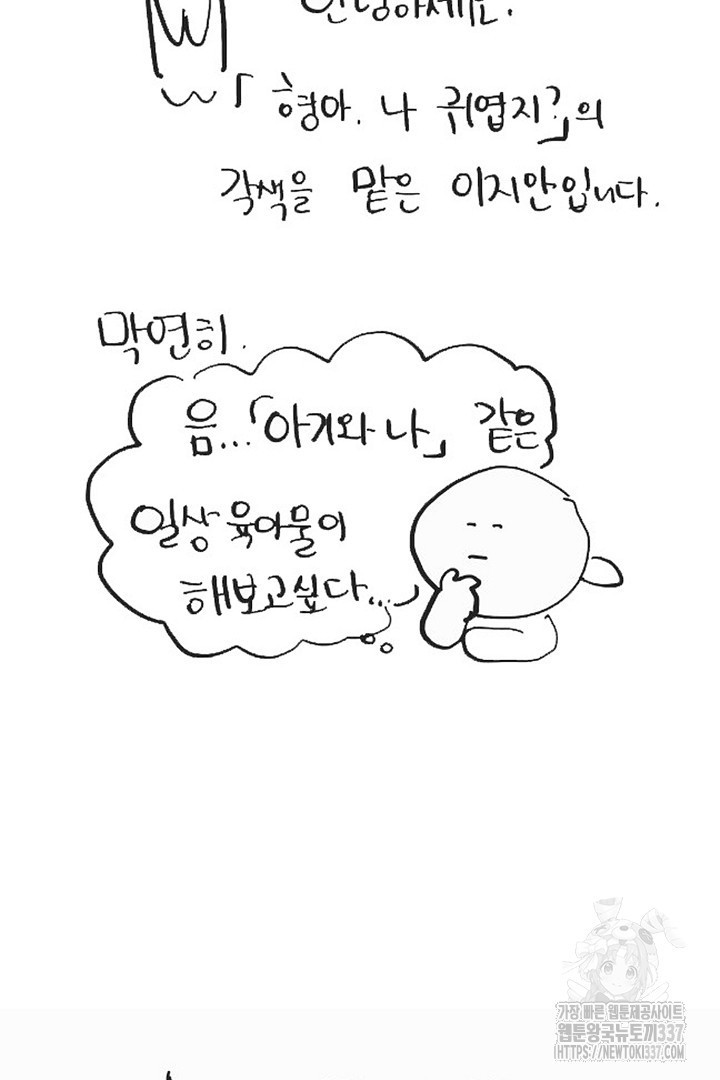 안녕하세요.
「형아. 나 귀엽지?」의
각색을 맡은 이지안입니다.
막연히.
음...「아기와 나」 같은
일상 육아물이
해보고싶다...
가장 빠른 웹툰제공사이트
웹툰왕국뉴토끼337
HTTPS://NEWTOKI337.COM